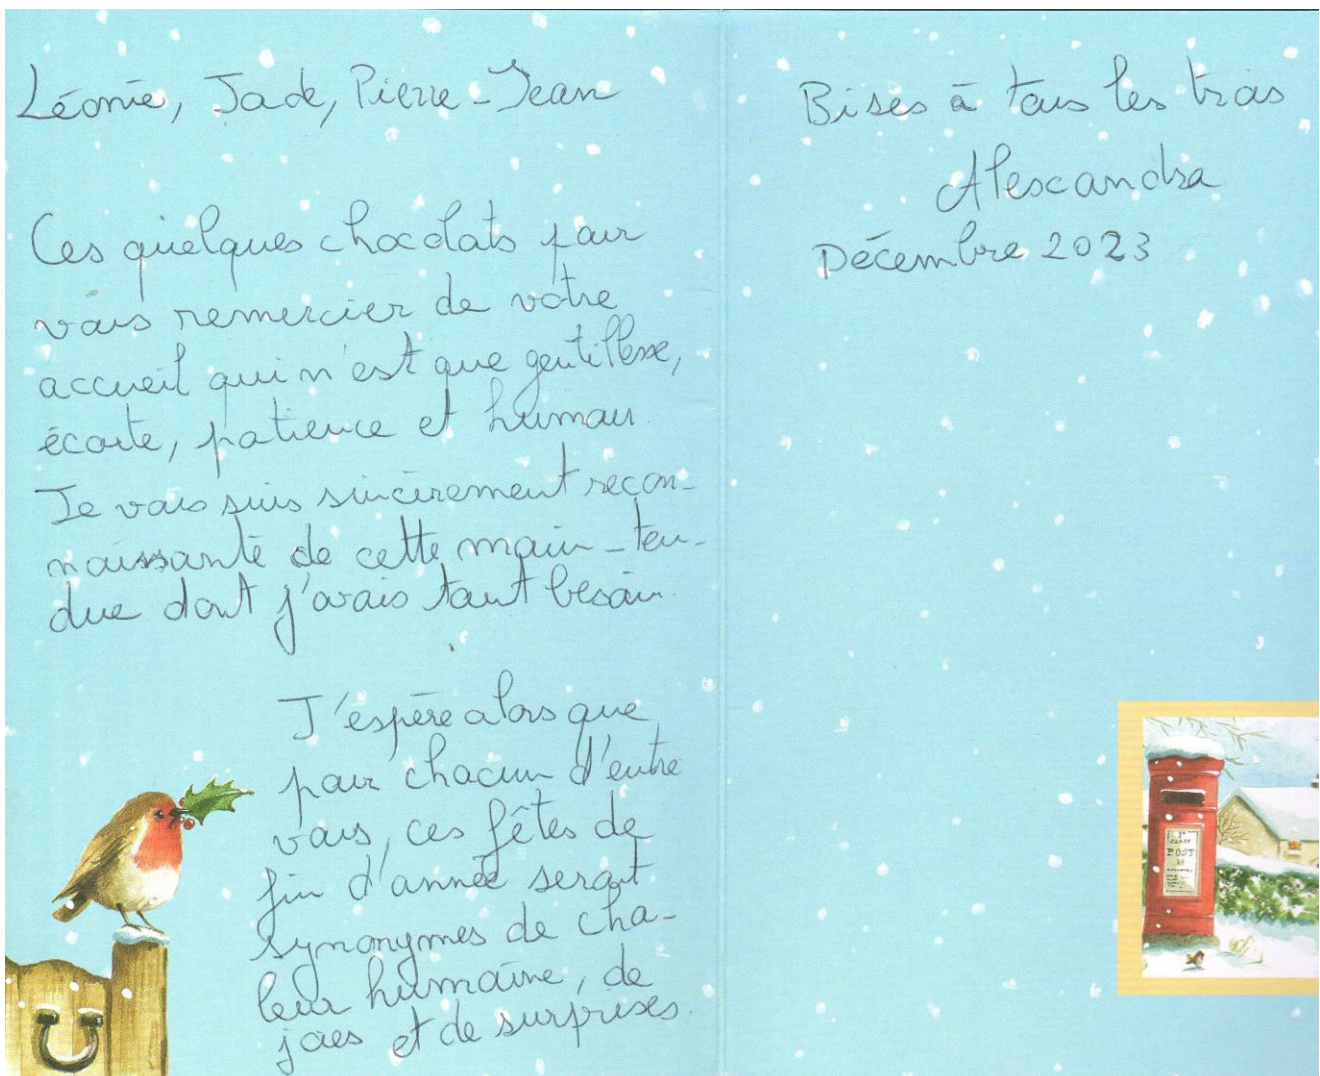 Léonie, Jade, Pierre-Jean
Ces quelques chocolats pour
vous remercier de votre
accueil qui n'est que gentillesse,
écoute, patience et humour.
Je vous suis sincèrement recon-
naissante de cette main-ten-
due dont j'avais tant besoin.
J'espère alors que
pour chacun d'entre
vous, ces fêtes de
fin d'année seront
synonymes de cha-
leur humaine, de
joies et de surprises.
Bises à tous les trois
Alexandra
Décembre 2023
POST